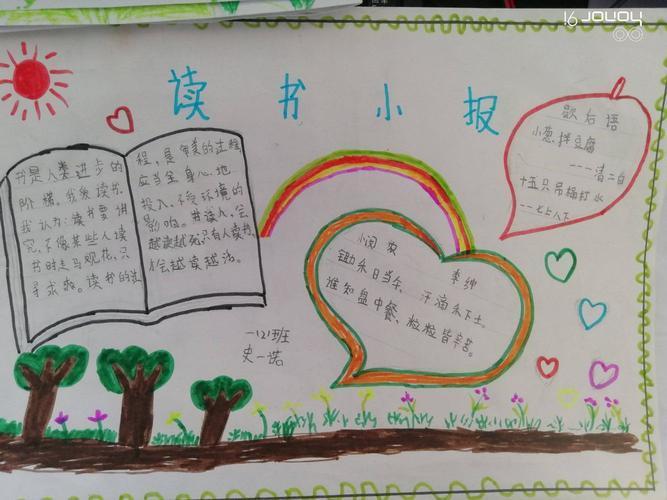 16 JOVOY
读书小报
书是人类进步的
阶梯,我爱读书。
我认为:读书要讲
究,不像某些人读
书时走马观花,只
寻求救。读书的过
程,是审美的过程,
应当全身心地
投入,不受环境的
影响。书读人,会
越读越死,只有人读书,
才会越读越活。
歇后语
小葱拌豆腐
----清二白
十五只吊桶打水
---七上八下
小闵农
李绅
锄禾日当午,汗滴禾下土。
谁知盘中餐,粒粒皆辛苦。
一121班
史一诺